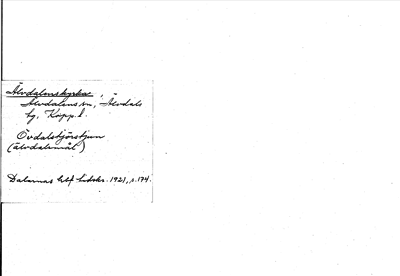 Älvdalens kyrka,
Älvdalens sn, Älvdals
hg, Kopp. l.
Övdalstjörstjun
(älvdalsmål)
Dalarnas hbf tidskr. 1921, s. 174.